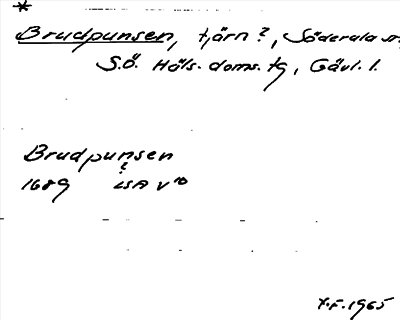 *
Brudpunsen, tjärn?, Söderala sn,
S.Ö. Häls. doms. tg, Gävl. l.
Brudpunsen
?
1689 LSA V 10
1965